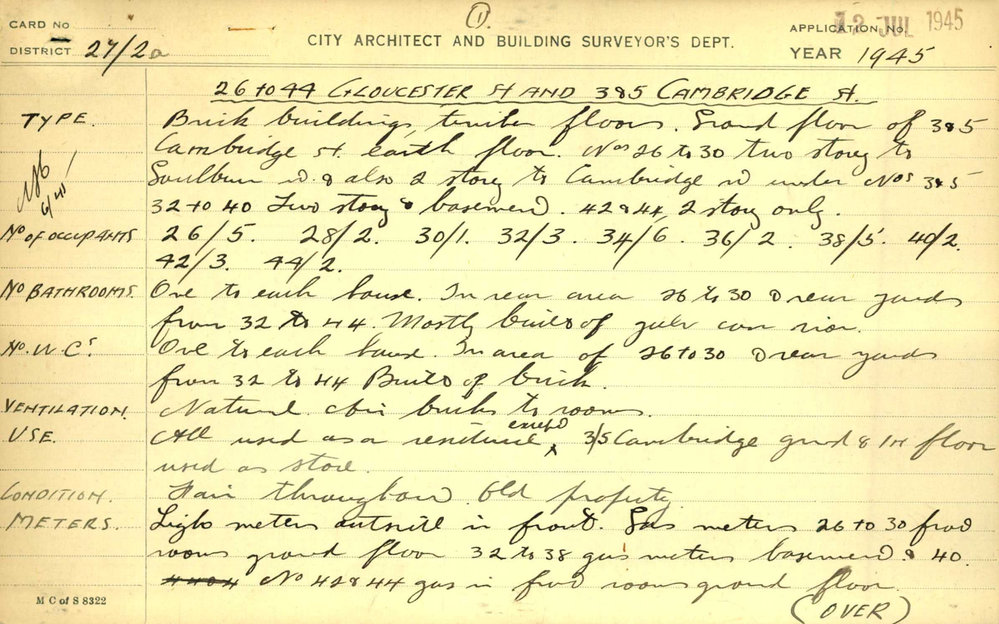 (1)
CARD No
DISTRICT 27/2a
CITY ARCHITECT AND BUILDING SURVEYOR'S DEPT.
APPLICATION No.
12 JUL 1945
YEAR 1945
26 to 44 GLOUCESTER St AND 385 CAMBRIDGE St.
TYPE. Brick buildings, timber floors. Ground floor of 385
Cambridge St. earth floor. Nos 26 to 30 two storey to
Goulburn St & also 2 storey to Cambridge St under Nos 385
32 to 40 Two storey & basement. 42 & 44, 2 storey only.
6/41
No of OCCUPANTS 26/5. 28/2. 30/1. 32/3. 34/6. 36/2. 38/5. 40/2.
42/3. 44/2.
No BATHROOMS. One to each house. In rear area 26 to 30 & rear yards
from 32 to 44. Mostly built of galv corr iron.
No. W.Cs. One to each house. In area of 26 to 30 & rear yards
from 32 to 44 Built of brick.
VENTILATION. Natural. Air bricks to rooms.
USE. All used as a residence except 385 Cambridge grnd & 1st floor
used as store.
CONDITION. Fair throughout. Old property.
METERS. Light meters outside in front. Gas meters 26 to 30 front
rooms ground floor 32 to 38 gas meters basement & 40.
No 42 & 44 gas in front rooms ground floor
(OVER)
M C of S 8322